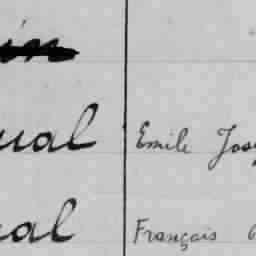 in
ual Emile Jos
al Français